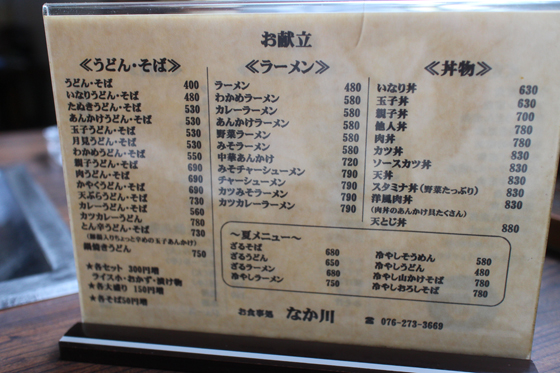 お献立
≪うどん・そば≫
うどん・そば 400
いなりうどん・そば 480
たぬきうどん・そば 530
あんかけうどん・そば 530
玉子うどん・そば 530
月見うどん・そば 530
わかめうどん・そば 550
親子うどん・そば 690
肉うどん・そば 690
かやくうどん・そば 690
天ぷらうどん・そば 730
カレーうどん・そば 560
カツカレーうどん 780
とん辛うどん・そば 730
鍋焼きうどん 750
★各セット 300円増
ライス小・おかず・漬け物
★各大盛り 150円増
★各そば50円増
≪ラーメン≫
ラーメン 480
わかめラーメン 580
カレーラーメン 580
あんかけラーメン 580
野菜ラーメン 580
みそラーメン 580
中華あんかけ 720
みそチャーシューメン 790
チャーシューメン 790
カツみそラーメン 790
カツカレーラーメン 790
≪丼物≫
いなり丼 630
玉子丼 630
親子丼 700
他人丼 780
肉丼 780
カツ丼 830
ソースカツ丼 830
天丼 830
スタミナ丼(野菜たっぷり) 830
洋風肉丼 830
(肉丼のあんかけ具たくさん)
天とじ丼 880
～夏メニュー～
ざるそば 680
ざるうどん 650
ざるラーメン 680
冷やしラーメン 750
冷やしそうめん 580
冷やしうどん 480
冷やし山かけそば 780
冷やしおろしそば 780
お食事処 なか川 ☎ 076-273-3669